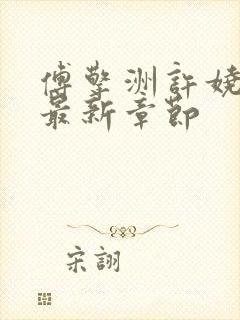 傅擎洲許嬈
最新章節
宋詡